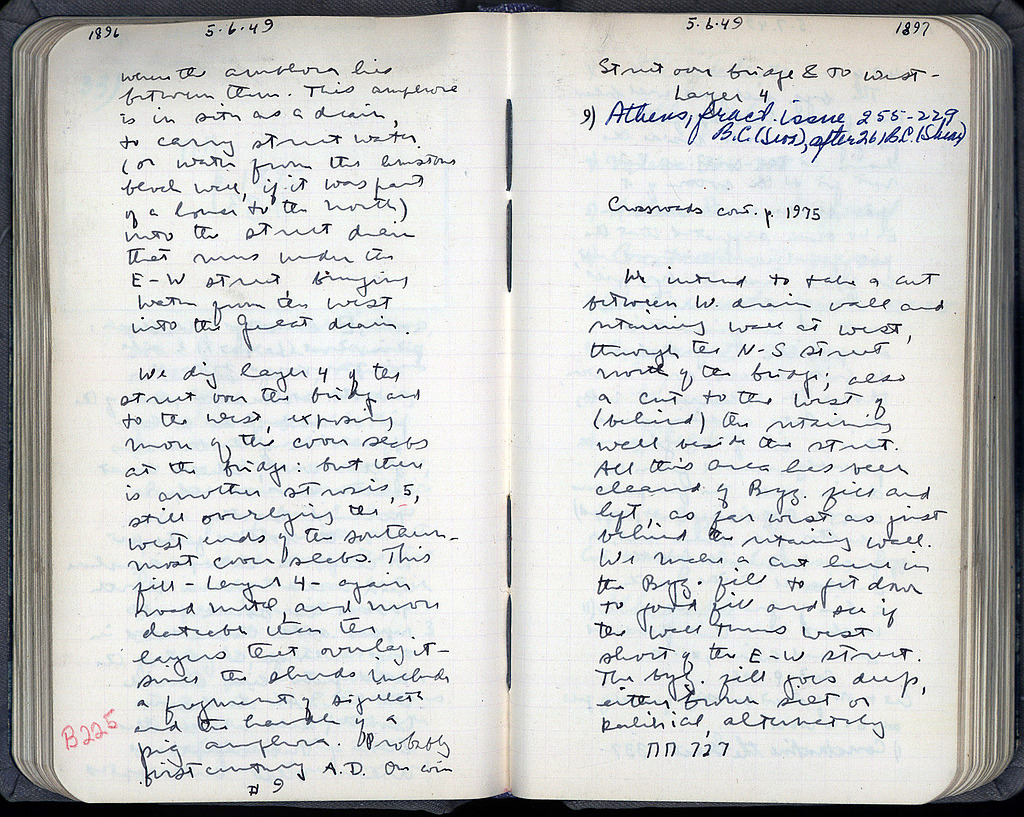 1896 5.6.49
where the amphora lies
between them. This amphora
is in situ as a drain,
to carry street water
(or water from the
block well, if it was part
of a house to the north)
into the street drain
that runs under the
E-W street, bringing
water from the west
into the Great drain.
We dig layer 4 of the
street over the bridge and
to the west, exposing
more of the cover slabs
at the bridge: but there
is another strosis, 5,
still overlying the
west ends of the southern-
most cover slabs. This
fill - Layer 4 - again
road metal, and more
dateable than the
layers that overlay it -
since the sherds include
a fragment of sigillata
and the handle of a
pig amphora. Probably
first century A.D. On coin
# 9
B225
5.6.49 1897
Street over bridge & to west -
Layer 4
9) Athens, fract. issue 255-229
B.C. (Svor.), after 261 B.C. (Shear)
Crossroads cont. p. 1975
We intend to take a cut
between W. drain wall and
retaining wall at west,
through the N-S street
north of the bridge; also
a cut to the west of
(behind) the retaining
wall beside the street.
All this area has been
cleared of Byz. fill and
left, as far west as just
behind the retaining wall.
We make a cut here in
the Byz. fill to get down
to good fill and see if
the wall turns west
short of the E-W street.
The byz. fill goes deep,
either brown silt or
political, alternately
ΠΠ 727